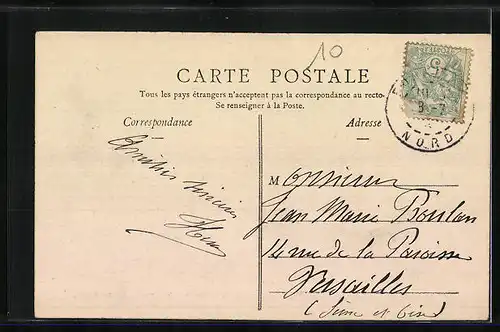 10
CARTE POSTALE
Tous les pays étrangers n'acceptent pas la correspondance au recto.
Se renseigner à la Poste.
Correspondance
Adresse
Amitiés sincères
Monsieur
Jean Marie Boulan
14 rue de la Paroisse
Versailles
(Seine et Oise)
NORD